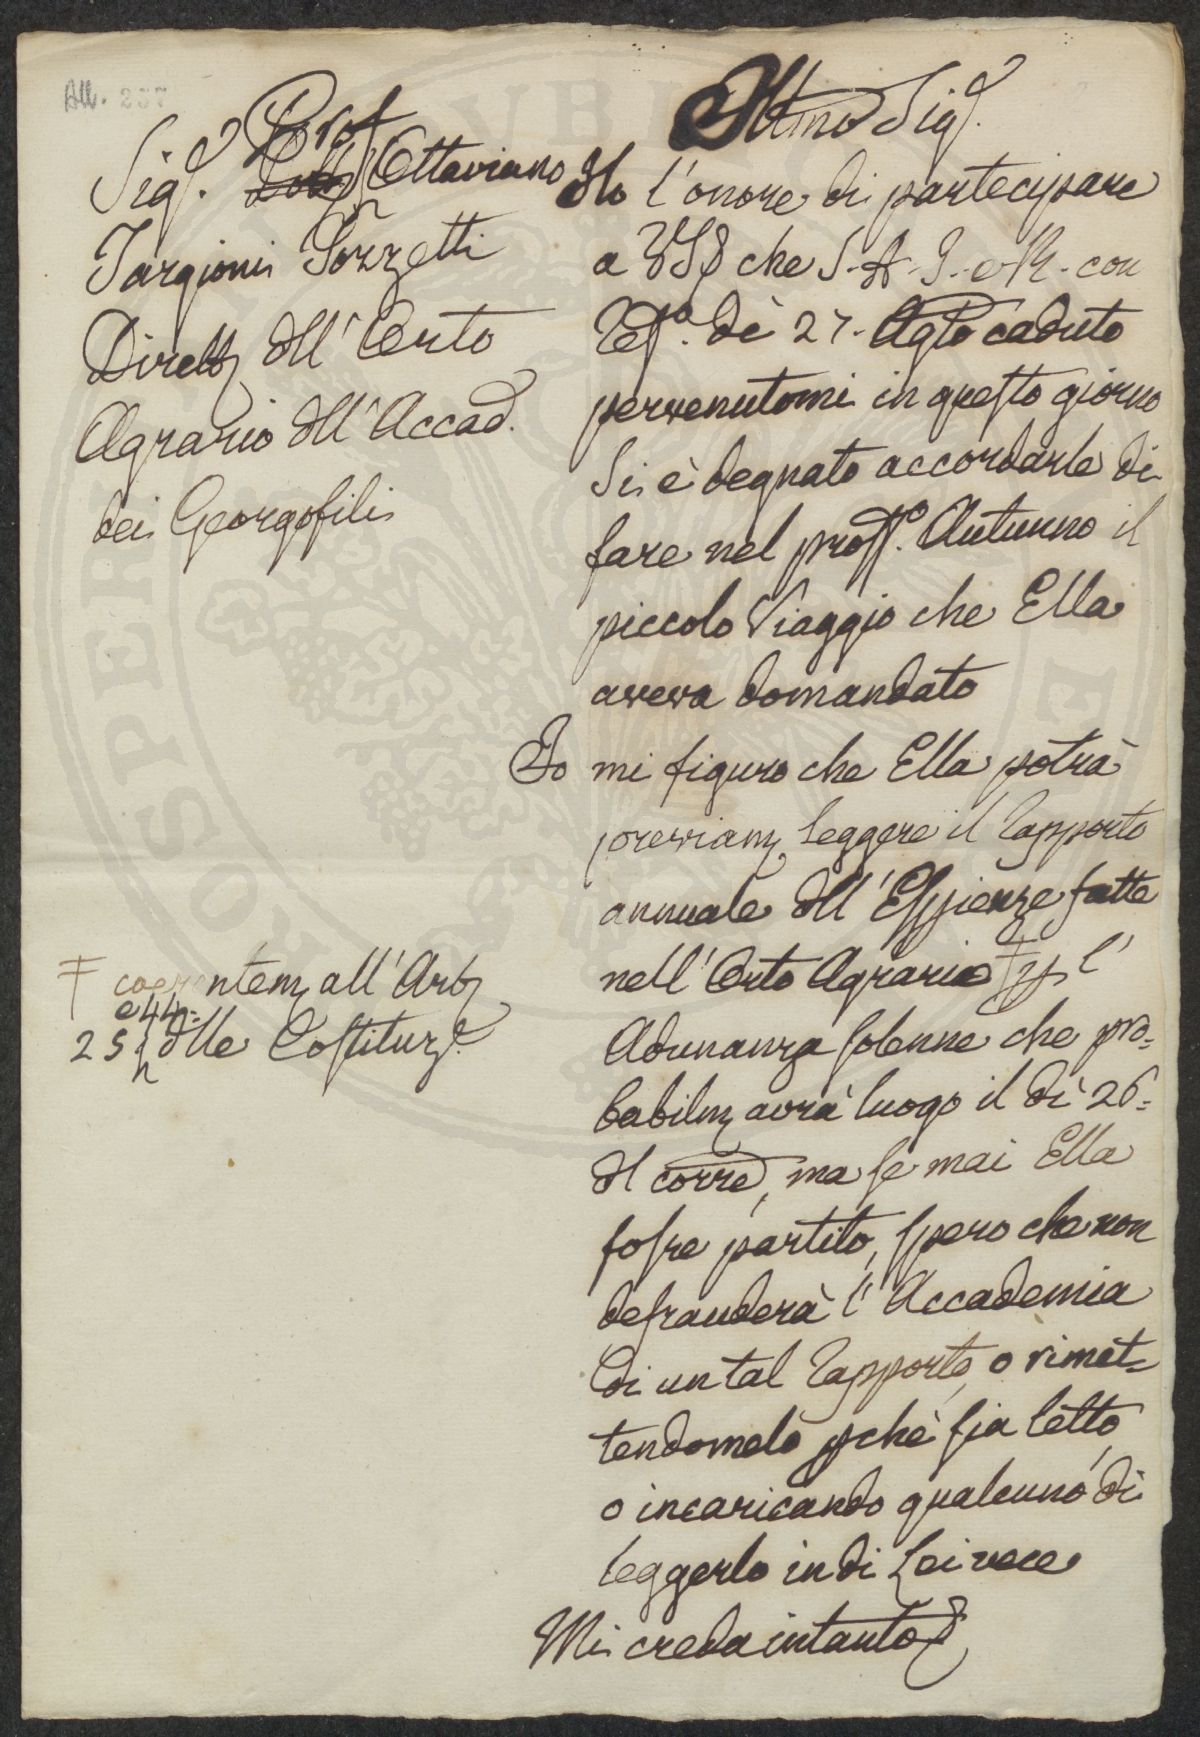 All. 237
Sig.r Prof
Dott. Ottaviano
Targioni Tozzetti
Dirett.e dell'Orto
Agrario dell'Accad.
dei Georgofili
Ill.mo Sig.r
Ho l'onore di partecipare
a VS che S. A. I. e R. con
de' 27. Ag.to caduto
pervenutomi in questo giorno
Si è degnato accordarle di
fare nel pross.o Autunno il
piccolo Viaggio che Ella
aveva domandato
Io mi figuro che Ella potrà
previam.e leggere il rapporto
annuale dell'Esperienze fatte
nell'Orto Agrario ‡ per l'
Adunanza solenne che pro=
babilm.e avrà luogo il dì 26=
del corr.e, ma se mai Ella
fosse partito, spero che non
defrauderà l'Accademia
di un tal rapporto, o rimet=
tendomelo perchè sia letto,
o incaricando qualcuno di
leggerlo in di Lei vece
Mi creda intanto &
‡ coerentem.e all'Art.
25 e 44= delle Costituz.